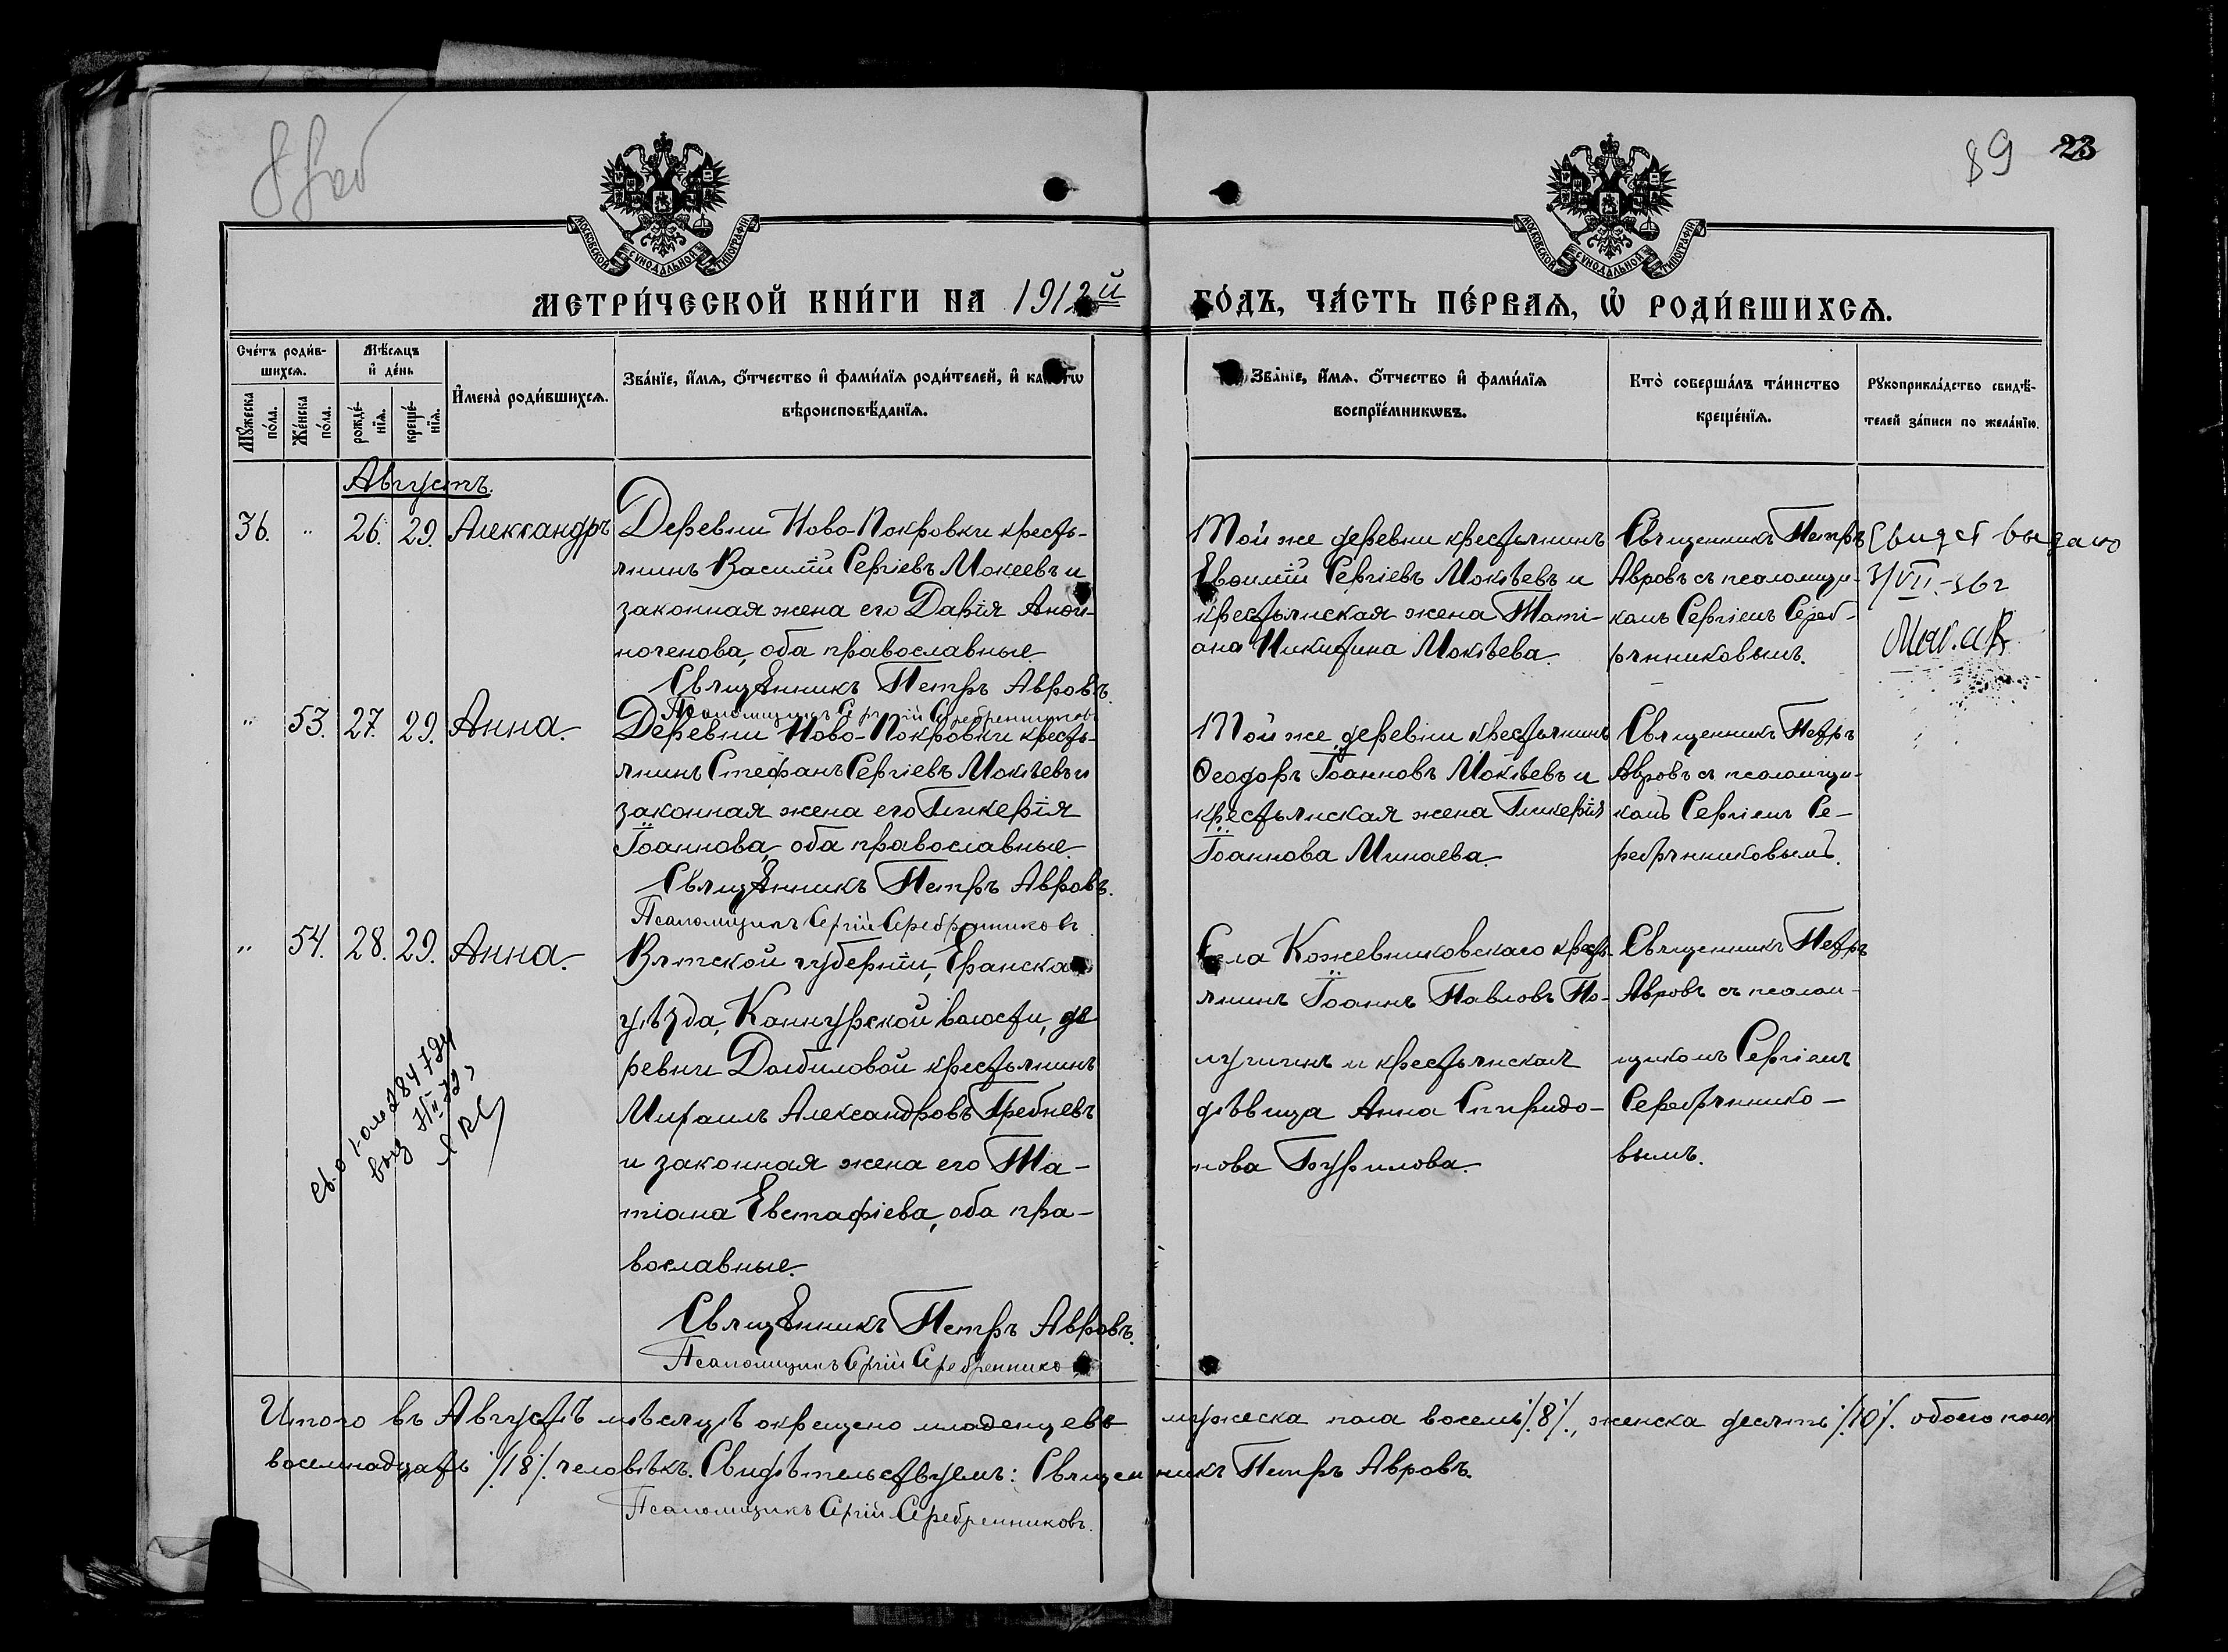 88об
89 23
МОСКОВСКОЙ СѴНОДАЛЬНОЙ ТИПОГРАФІИ
МОСКОВСКОЙ СѴНОДАЛЬНОЙ ТИПОГРАФІИ
МЕТРИ́ЧЕСКОЙ КНИ́ГИ НА 1912й ГО́ДЪ, ЧА́СТЬ ПЕ́РВАЯ, Ѡ РОДИ́ВШИХСЯ.
Сче́тъ роди́в-
шихся.
Му́жеска по́ла.
Же́нска по́ла.
Мѣ́сяцъ
и де́нь
рожде́-
нїя.
креще́-
нїя.
И҆мена̀ роди́вшихся.
Зва́нїе, и҆́мя, ѻ҆́тчество и҆ фами́лїя роди́телей, и҆ како́гѡ
вѣроисповѣ́данїя.
Зва́нїе, и҆́мя, ѻ҆́тчество и҆ фами́лїя
воспрїе́мникѡвъ.
Кто̀ соверша́лъ та́инство
креще́нїя.
Рукоприкла́дство свидѣ́-
телей за́писи по жела́нїю.
Августъ.
36. " 26. 29. Александръ
Деревни Ново-Покровки кресть-
янинъ Василій Сергіевъ Мокеевъ и
законная жена его Дарія
оба православные.
Священникъ Петръ Авровъ.
Псаломщикъ Сергій Серебренниковъ
Той же деревни крестьянинъ
Евѳимій Сергіевъ Мокѣевъ и
крестьянская жена Тати-
ана Никитина Мокѣева.
Священникъ Петръ
Авровъ съ псаломщи-
комъ Сергіемъ Сереб-
рянниковымъ.
Свидет выдано
3/VII-36г
" 53. 27. 29. Анна.
Деревни Ново-Покровки кресть-
янинъ Стефанъ Сергіевъ Мокѣевъ и
законная жена его Гликерія
Іоаннова, оба православные.
Священникъ Петръ Авровъ.
Псаломщикъ Сергій Серебренниковъ
Той же деревни крестьянинъ
Ѳеодоръ Іоанновъ Мокѣевъ и
крестьянская жена Гликерія
Іоаннова Минаева.
Священникъ Петръ
Авровъ съ псаломщи-
комъ Сергіемъ Се-
ребрянниковымъ.
" 54. 28. 29. Анна.
Вятской губерніи, Яранскаго
уѣзда, Кокнурской волости, де
ревни Долбиловой крестьянинъ
Михаилъ Александровъ Гребневъ
и законная жена его Та-
тіана Евстафіева, оба пра-
вославные.
Священникъ Петръ Авровъ.
Псаломщикъ Сергій Серебреннико
Села Кожевниковскаго кресть-
янинъ Іоаннъ Павловъ По-
лугинъ и крестьянская
дѣвица Анна Спиридо-
нова Гурилова.
Священникъ Петръ
Авровъ съ псалом-
щикомъ Сергіемъ
Серебрянико-
вымъ.
Итого въ Августѣ мѣсяцѣ окрещено младенцевъ мужеска пола восемь ./.8./., женска десять ./.10./. обоего пола
восемнадцать ./.18./. человѣкъ. Свидѣтельствуемъ: Священникъ Петръ Авровъ.
Псаломщикъ Сергій Серебренниковъ.